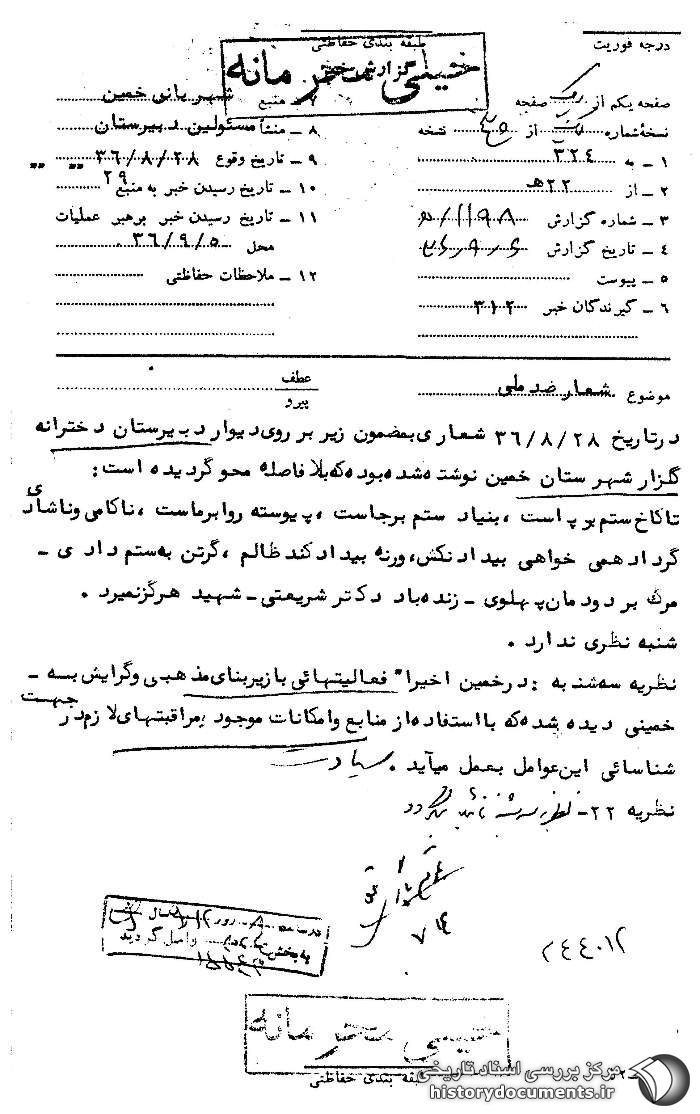 طبقه بندی حفاظتی
درجه فوریت
خیلی محرمانه
گزارش خبر
صفحه یکم از یک صفحه
نسخهٔ شماره از نسخه
۱ - به ۳۲۴
۲ - از ۲۲ هـ
۳ - شماره گزارش
۴ - تاریخ گزارش
۵ - پیوست
۶ - گیرندگان خبر ۳۱۲
۷ - منبع شهربانی خمین
۸ - منشأ مسئولین دبیرستان
۹ - تاریخ وقوع ۳۶/۸/۲۸
۱۰ - تاریخ رسیدن خبر به منبع ۲۹ " "
۱۱ - تاریخ رسیدن خبر برهبر عملیات
محل ۳۶/۹/۵
۱۲ - ملاحظات حفاظتی
موضوع شعار ضد ملی
عطف
پیرو
در تاریخ ۳۶/۸/۲۸ شعاری بمضمون زیر بر روی دیوار دبیرستان دخترانه
گلزار شهرستان خمین نوشته شده بود که بلافاصله محو گردیده است:
تا کاخ ستم بر پا است، بنیاد ستم برجاست، پیوسته روا بر ماست، ناکامی و ناشادی
گر داد همی خواهی بیداد نکش، ورنه بیداد کند ظالم، گر تن به ستم دادی -
مرگ بر دودمان پهلوی - زنده باد دکتر شریعتی - شهید هرگز نمیرد.
شنبه نظری ندارد.
نظریه سه شنبه: در خمین اخیرا" فعالیتهائی با زیربنای مذهبی و گرایش به -
خمینی دیده شده که با استفاده از منابع و امکانات موجود مراقبتهای لازم در جهت
شناسائی این عوامل بعمل میآید. سیادت
نظریه ۲۲- نظریه سه شنبه تائید میگردد
۲۴۴۰۱۲
واصل گردید
خیلی محرمانه
طبقه بندی حفاظتی
مرکز بررسی اسناد تاریخی
historydocuments.ir